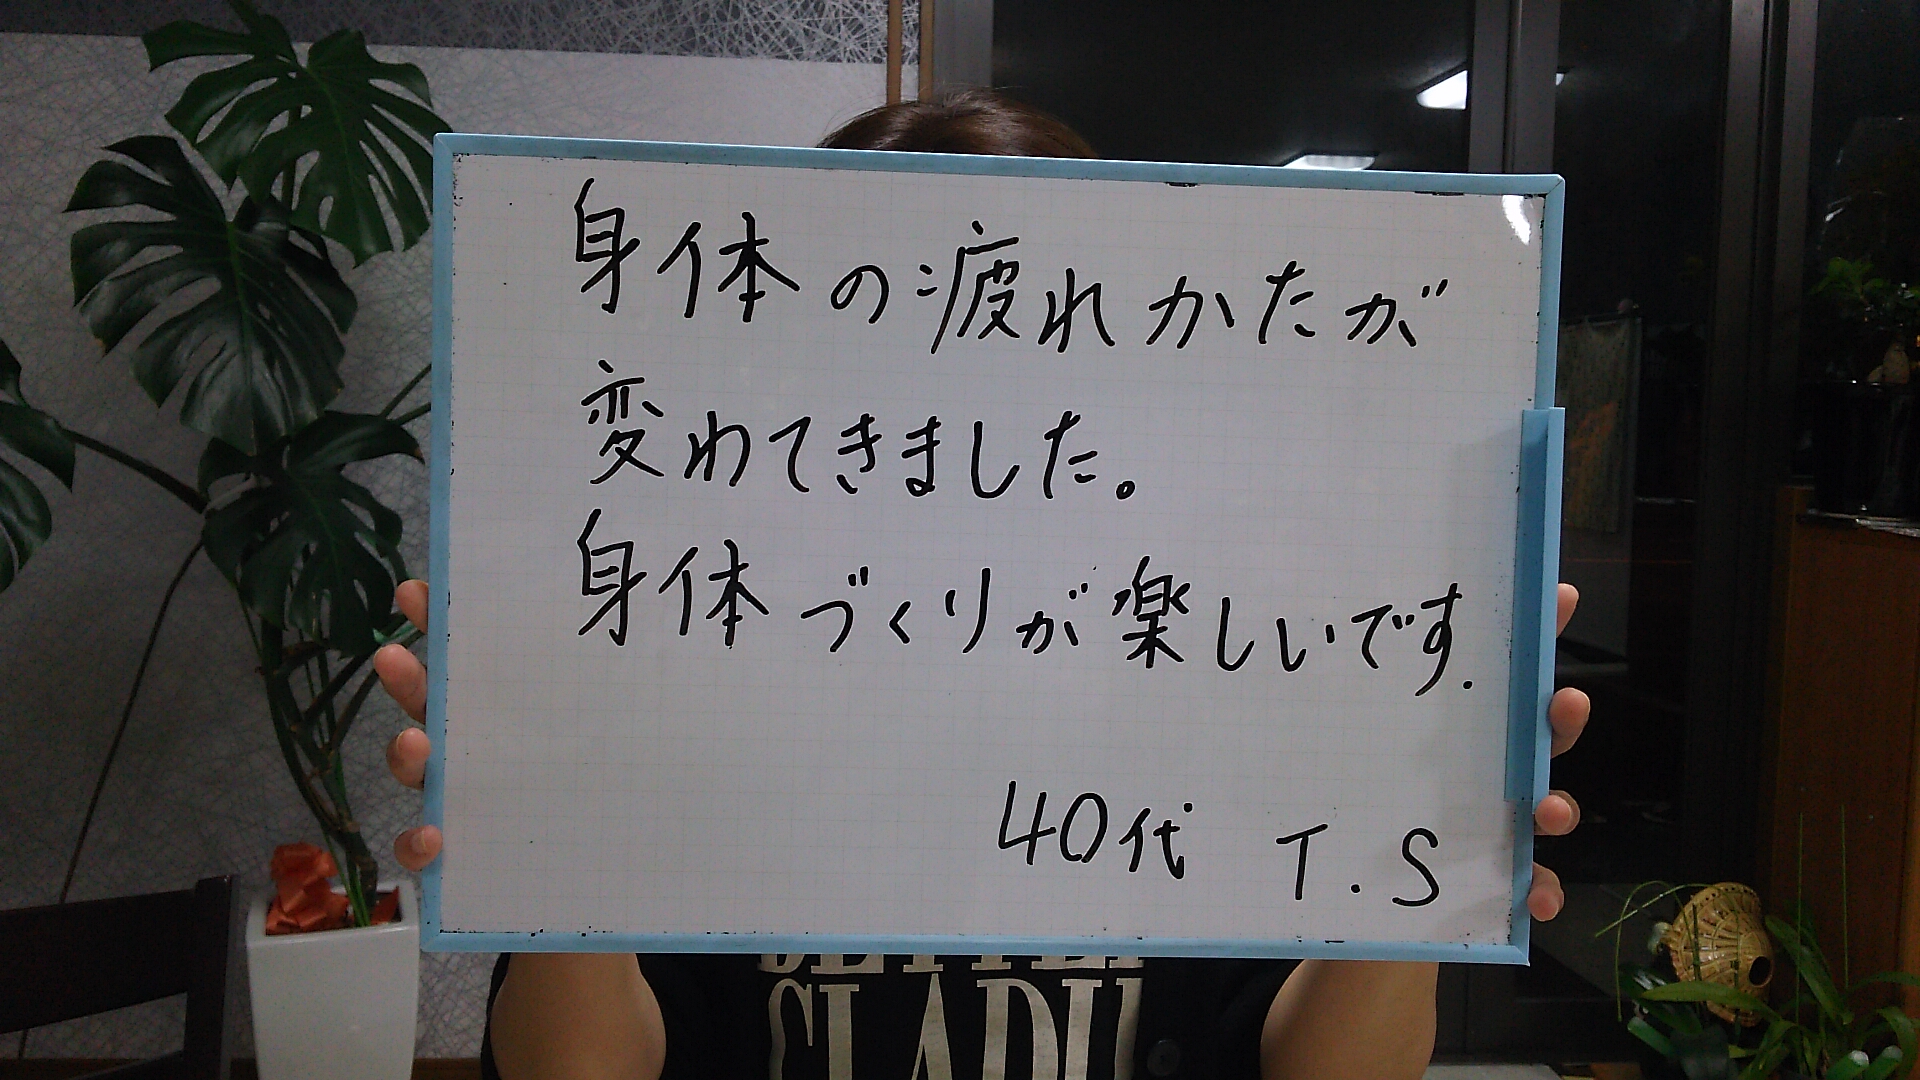 身体の疲れかたが
変わてきました。
身体づくりが楽しいです.
40代 T.S